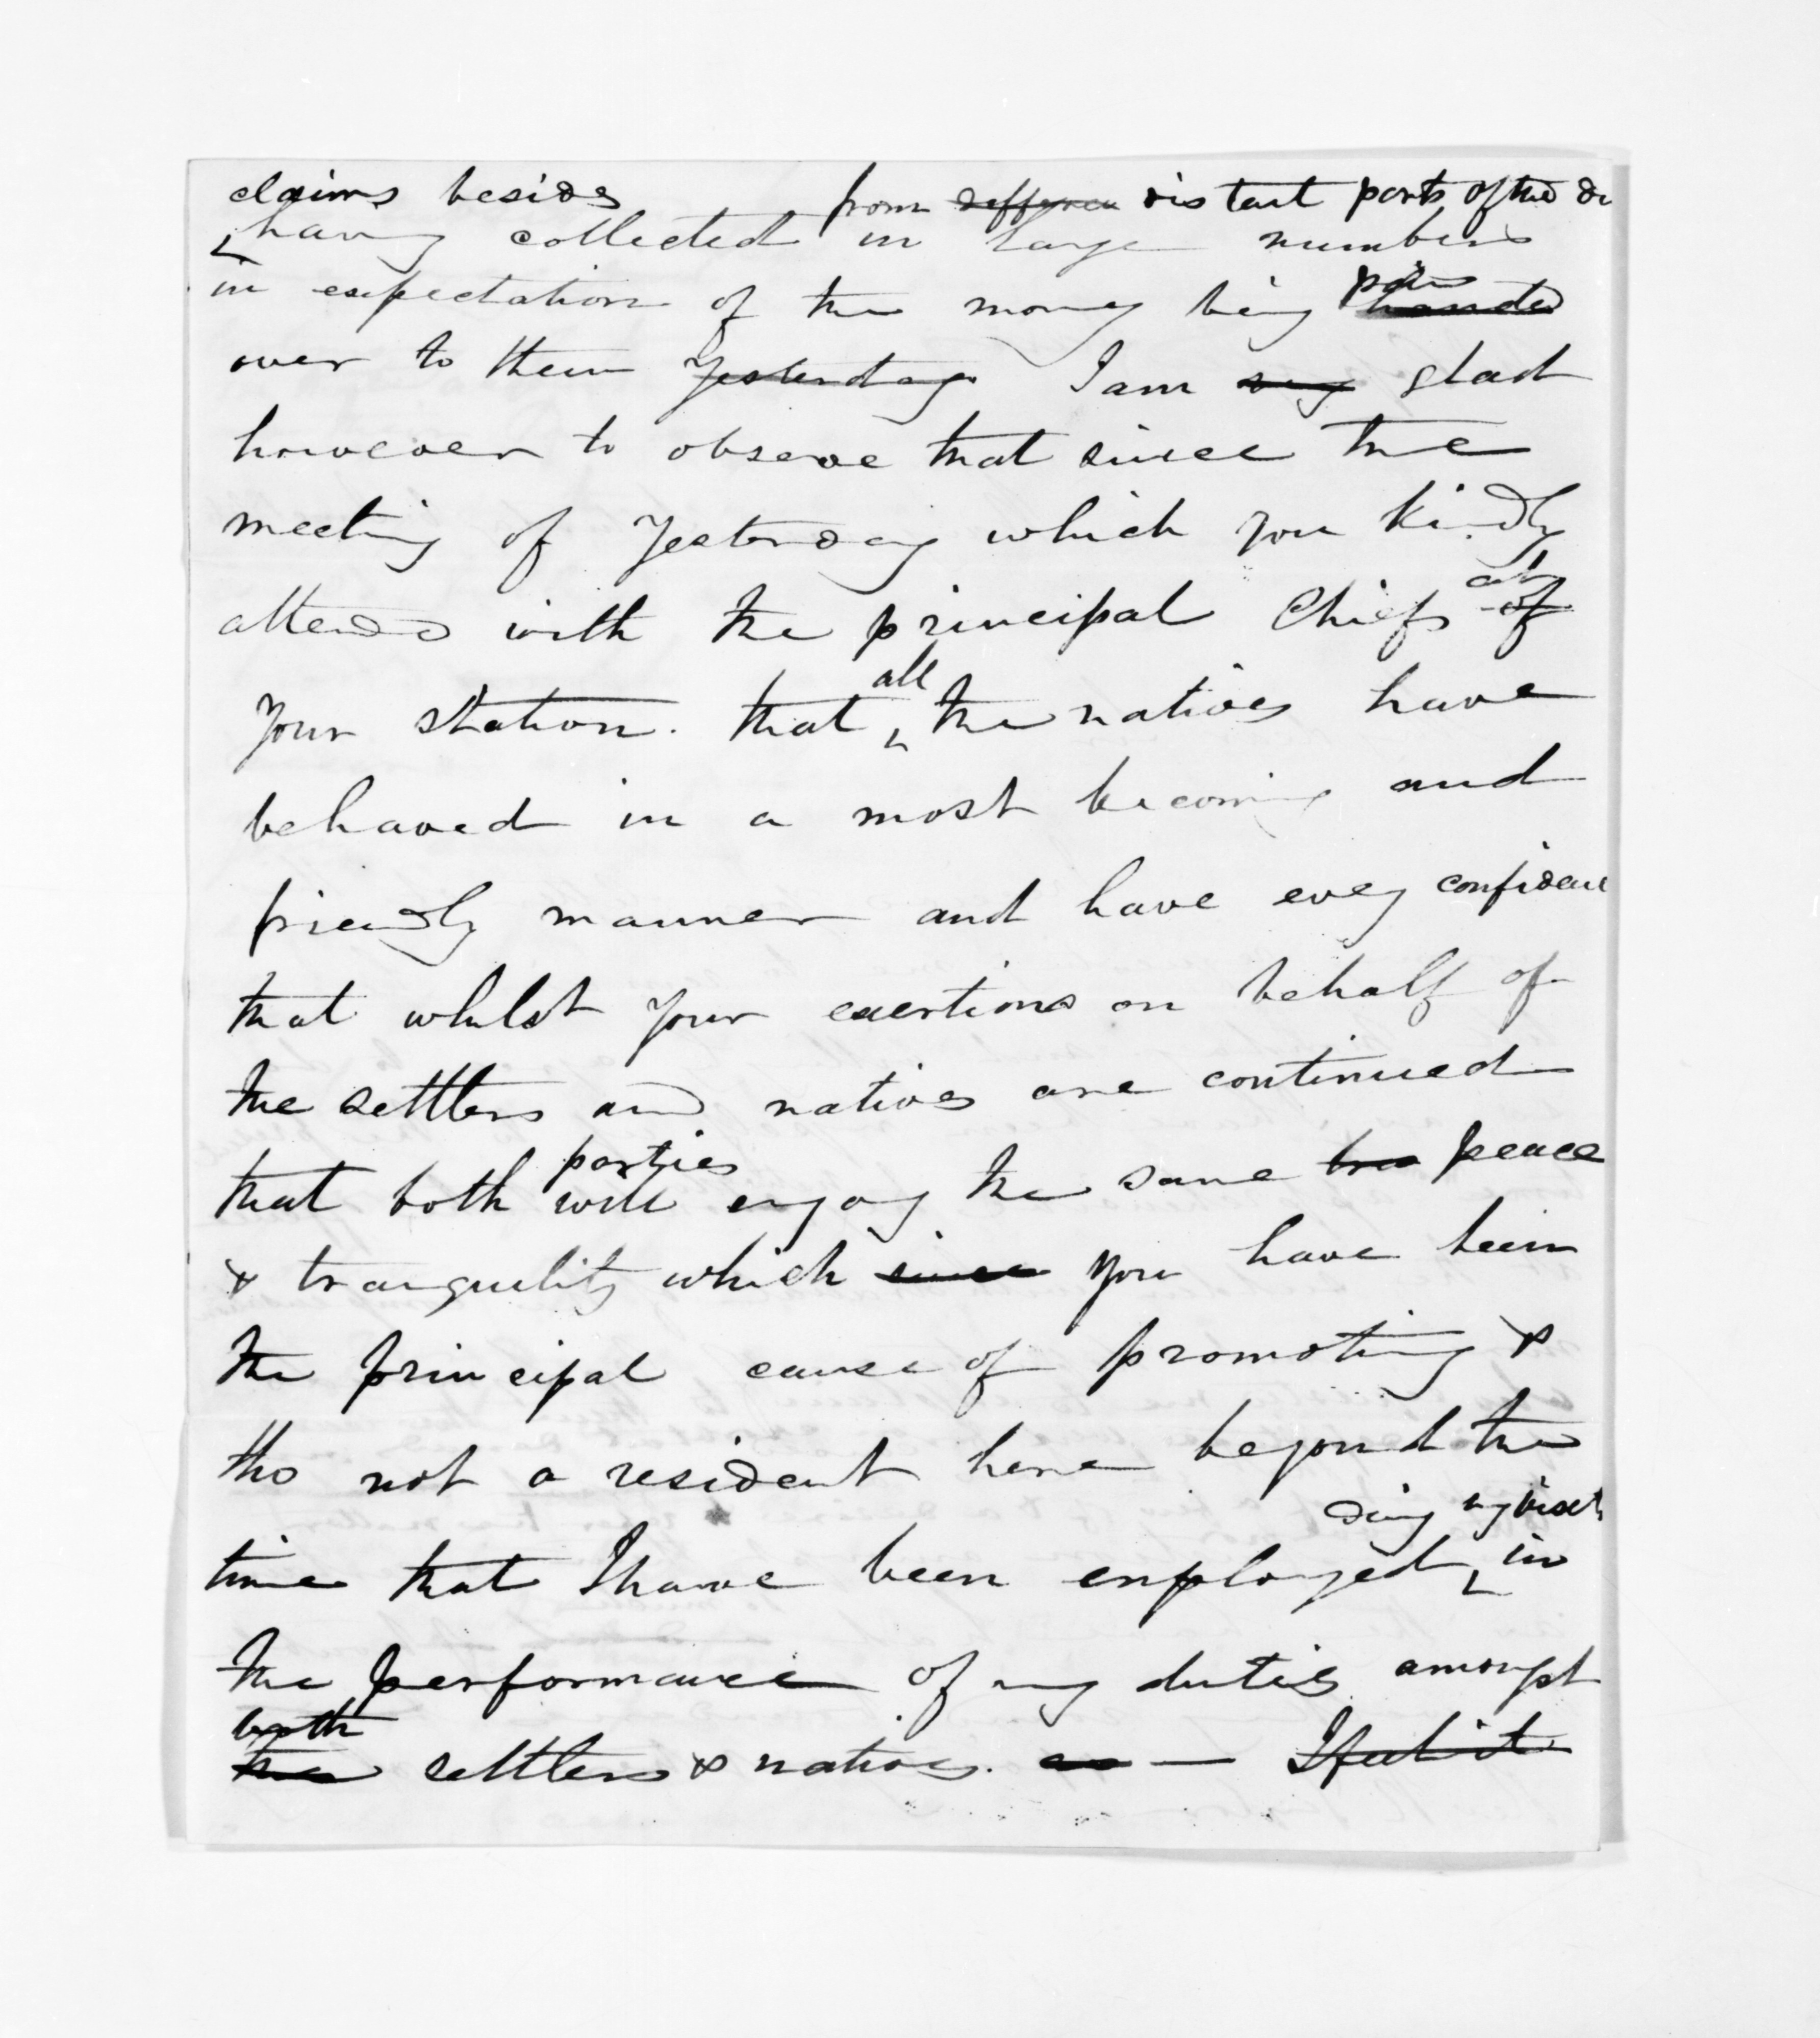 claims beside from differen distant parts of the di
having collected in large numbers
in expectation of the money being paid handed
over to them yesterday. I am very glad
however to observe that since the
meeting of Yesterday which you kindly
attended with the principal Chiefs at of
your station. that all the natives have
behaved in a most becoming and
friendly manner and have every confidenc
that whilst your exertions on behalf of
the settlers and natives are continued
that both parties will enjoy the same peace
& tranquility which since you have been
the principal cause of promoting &
tho not a resident here beyond the
time that I have been employed in
the performance of my duties amongst
both the settlers & natives. as — I feel it